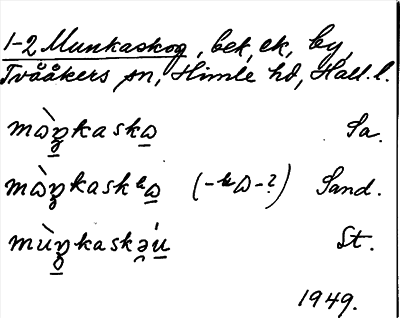 1-2 Munkaskog, bek, ek, by,
Tvååkers sn, Himle hd, Hall. l.
mɷ̀ŋkaskɷ Sa.
mɷ̀ŋkaskᵘɷ (-ᵘɷ-?) Sand.
mùŋkaskə́u St.
1949.